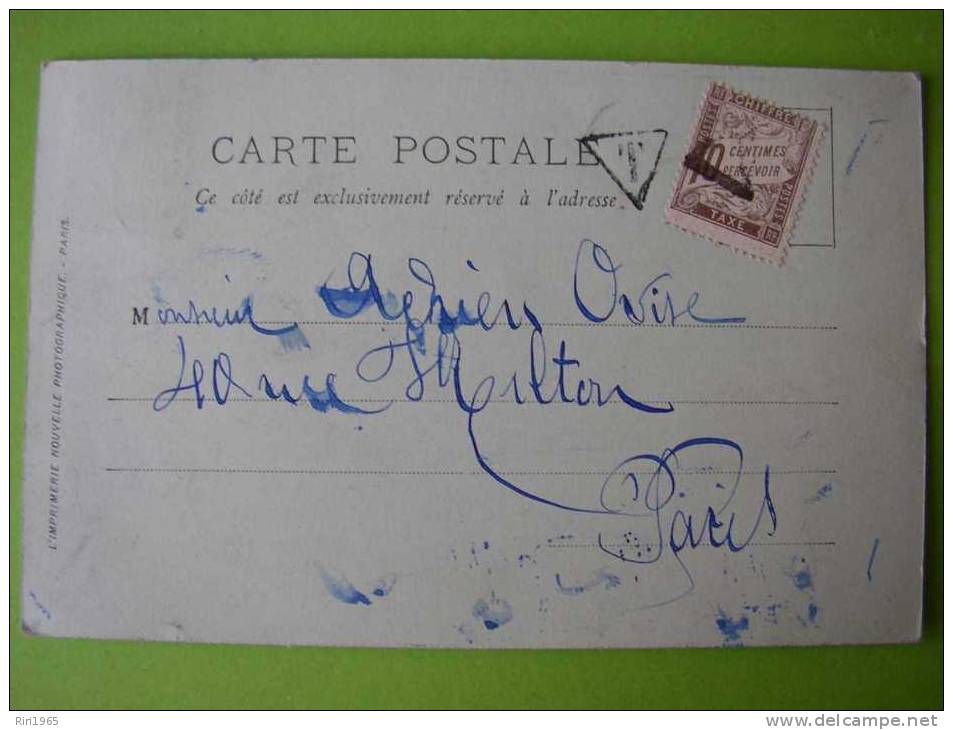 CARTE POSTALE
Ce côté est exclusivement réservé à l'adresse
T
CHIFFRE
POSTES
10 CENTIMES
À
PERCEVOIR
POSTES
TAXE
RF
Monsieur
40 rue Milton
Paris
L'IMPRIMERIE NOUVELLE PHOTOGRAPHIQUE. - PARIS.
Riri1965
www.delcampe.net